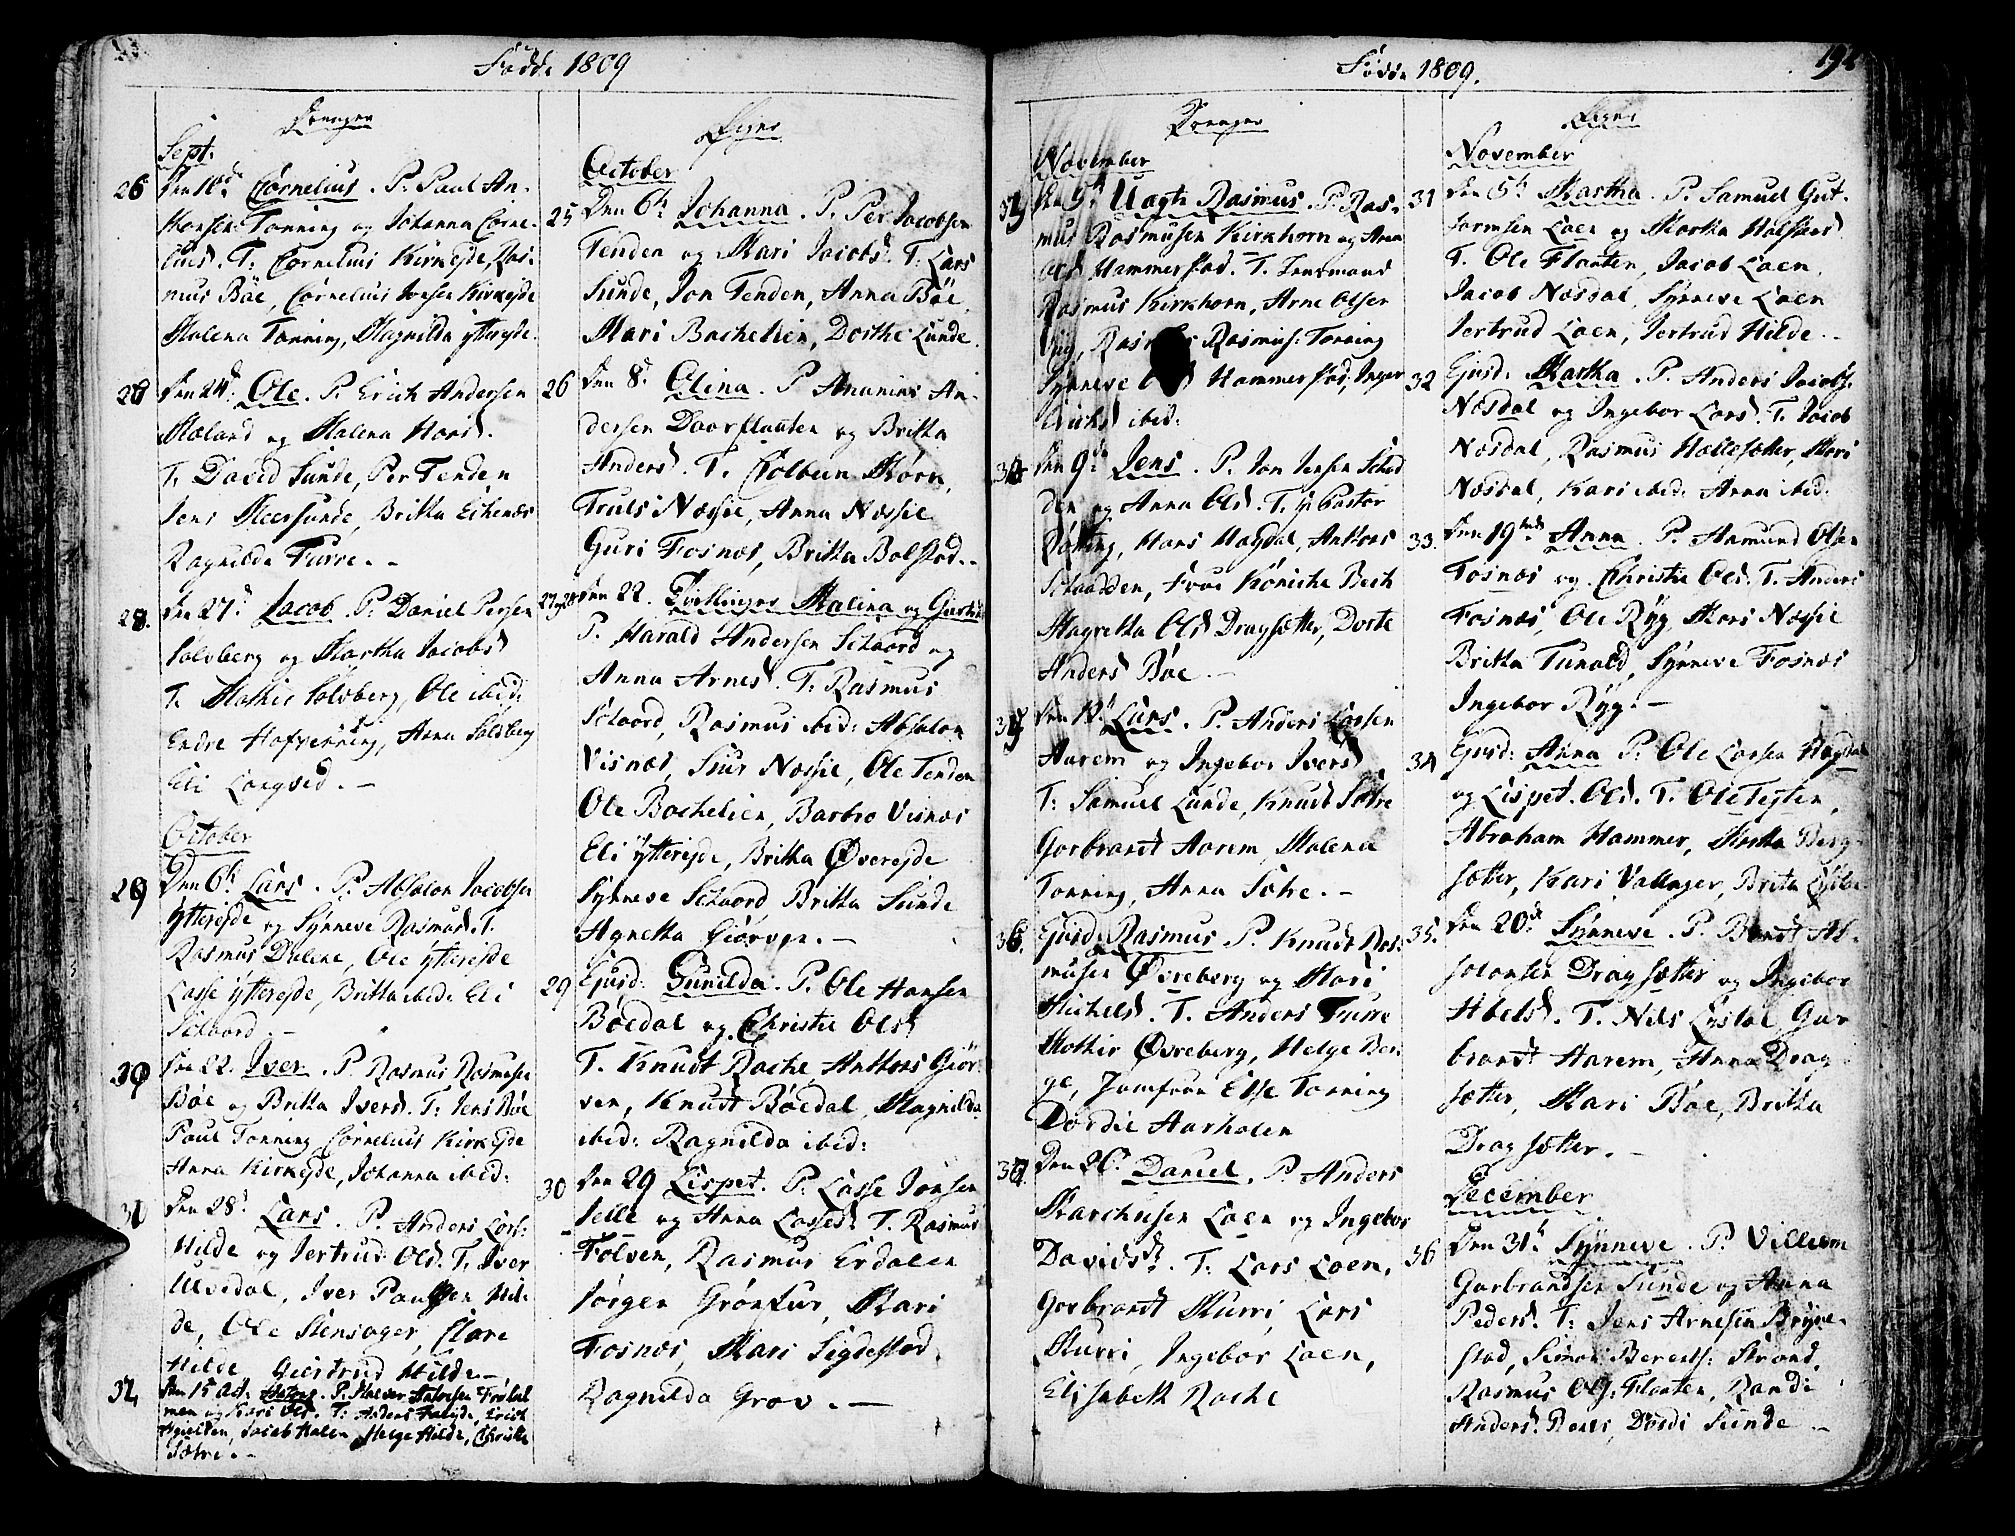 Fødde 1809
Drenger
Sept.
26 Den 10d Cornelius. P. Paul An-
Hansen Tonning og Johanna Corne-
liusd. T. Cornelius Kirkeyde, Ras-
mus Böe, Cornelius Iversen Kirkeyde
Malena Tonning, Magnilda Ytterejde.
Den 24d. Ole. P. Erich Andersen
Mæland og Malena Hansd.
T. David Sunde, Per Tenden
Jens Meersunde, Britha Eikenæs
Ragnilda Furre. -
28. Den 27d. Jacob. P. Daniel Persen
Solvberg og Martha Jacobsd
T. Mathis Solvberg, Ole ibid:
Endre Hafrenning, Anna Solvberg
Eli Langsed. -
October
29 Den 6h. Lars. P. Absalon Jacobsen
Ytterejde og Synneve Rasmusd. T.
Rasmus Dalene, Ole Ytterejde
Lasse Ytterejde, Britha ibid: Eli
Sclaard. -
30 Den 22. Iver. P. Rasmus Rasmusen
Böe og Britha Iversd. T. Jens Böe
Paul Tonning, Cornelius Kirkeyde
Anna Kirkeyde, Johanna ibid:
31 Den 28d. Lars. P. Anders Lars:
Hilde og Jertrud Olsd. T. Iver
Ulvedal, Iver Paulsen Hil-
de, Ole Stensager, Clare
Hilde Giertrud Hilde. -
32 Den 15 Oct.
men og Kari Olsd. T. Anders Erich
Jacob Helge Hilde, Christi
Sætre. -
Pigers
October
25 Den 6h. Johanna. P. Per Jacobsen
Tenden og Mari Jacobsd. T. Lars
Sunde, Jon Tenden, Anna Böe
Mari Bachelien, Dorthe Lunde.
26 Den 8d. Olina. P. Ananias An-
dersen Daarflaaten og Britha
Andersd. T. Colbeen Möen,
Truls Næssie, Anna Næssie
Guri Fosnæs, Britha Bolstad. -
27 og 28 Den 22. Tvellinger Malina og
P. Harald Andersen Sclaard og
Anna Arnesd. T. Rasmus
Sclaard, Rasmus ibid: Absalon
Visnæs, Siur Næssie, Ole Tenden
Ole Bachelien, Barbro Visnæs
Eli Ytterejde, Britha Øverejde
Synneve Sclaard Britha Sunde
Agnetha Giörven. -
29 Ejusd: Gunilda. P. Ole Hansen
Böedal og Christie Olsd
T. Knudt Rache Anthon Giör-
ven, Knudt Böedal, Magnilda
ibid: Ragnilda ibid:
30 Den 29 Lispet. P. Lasse Jonsen
Selle og Anna Lassed. T. Rasmus
Folven, Rasmus Erdalen
Jörgen Grönfur, Mari
Fosnæs, Mari Sigdestad,
Ragnilda Grov. -
Fødde 1809.
192
Drenger
November
Den 5h Uagte Rasmus. P. Ras-
mus Rasmusen Kirkhorn og Anna
Hammerstad. T.
Rasmus Kirkhorn, Arne Olsen
Rasmus: Tonning
Synneve Hammerstad, Inger
Erichsd ibid:
34 Den 9d. Jens. P. Jon Jensen Scha
den og Anna Olsd. T. Hr Pastor
Hans Magdal, Anthon
Schadden, Frue Kønicke Bech
Magretha Olsd Dragsetter, Dorte
Andersd Böe. -
35 Den 12d Lars. P. Anders Larsen
Aarem og Ingebor Iversd
T: Samuel Lunde, Knudt Sætre
Garbrandt Aarem, Malena
Tonning, Anna Sætre. -
36. Ejusd: Rasmus. P. Knudt Ras-
musen Øvreberg og Mari
Michelsd. T. Anders Furre
Mathis Øvreberg, Helge Ber-
ge, Jomfrue Else Tonning
Dordie Aarholen
Den 26. Daniel. P. Anders
Marchusen Loen og Ingebor
Davidsd. T. Lars Loen,
Garbrandt Murri, Lars
Murri, Ingebor Loen,
Elisabeth Rache
Pigers
November
31 Den 5h Martha. P. Samuel Gut-
tormsen Loen og Martha
T. Ole Flaaten, Jacob Loen
Jacob Næsdal, Synneve Loen
Jertrud Loen, Jertrud Hilde. -
32 Ejusd. Martha. P. Anders Jacobs.
Næsdal og Ingebor Larsd. T. Jacob
Næsdal, Rasmus Hellesetter, Mari
Næsdal, Kari ibid: Anna ibid:
33. Den 19d Anna. P. Anmund Olsen
Fosnæs og Christie Olsd. T. Anders
Fosnæs, Ole Ryg, Mari Næssie
Britha Tunold, Synneve Fosnæs
Ingebor Ryg. -
34 Ejusd: Anna P. Ole Larsen Magdal
og Lispet Olsd. T. Ole Tejten,
Abraham Hammer, Martha Berg-
setter, Kari Vallager, Brita
35. Den 20d. Synneve. P. Berndt Ab-
solonsen Dragsetter og Ingebor
Abelsd. T. Nils Lystøl Gar-
brandt Aarem, Anna Drag-
setter, Mari Böe, Britha
Dragsetter. -
December
36 Den 31h. Synneve. P. Villum
Garbrandsen Sunde og Anna
Pedersd. T: Jens Arnesen Bryne-
stad, Simon Berents: Strand,
Rasmus Ols: Flaaten, Randi
Andersd. Dordi Sunde -